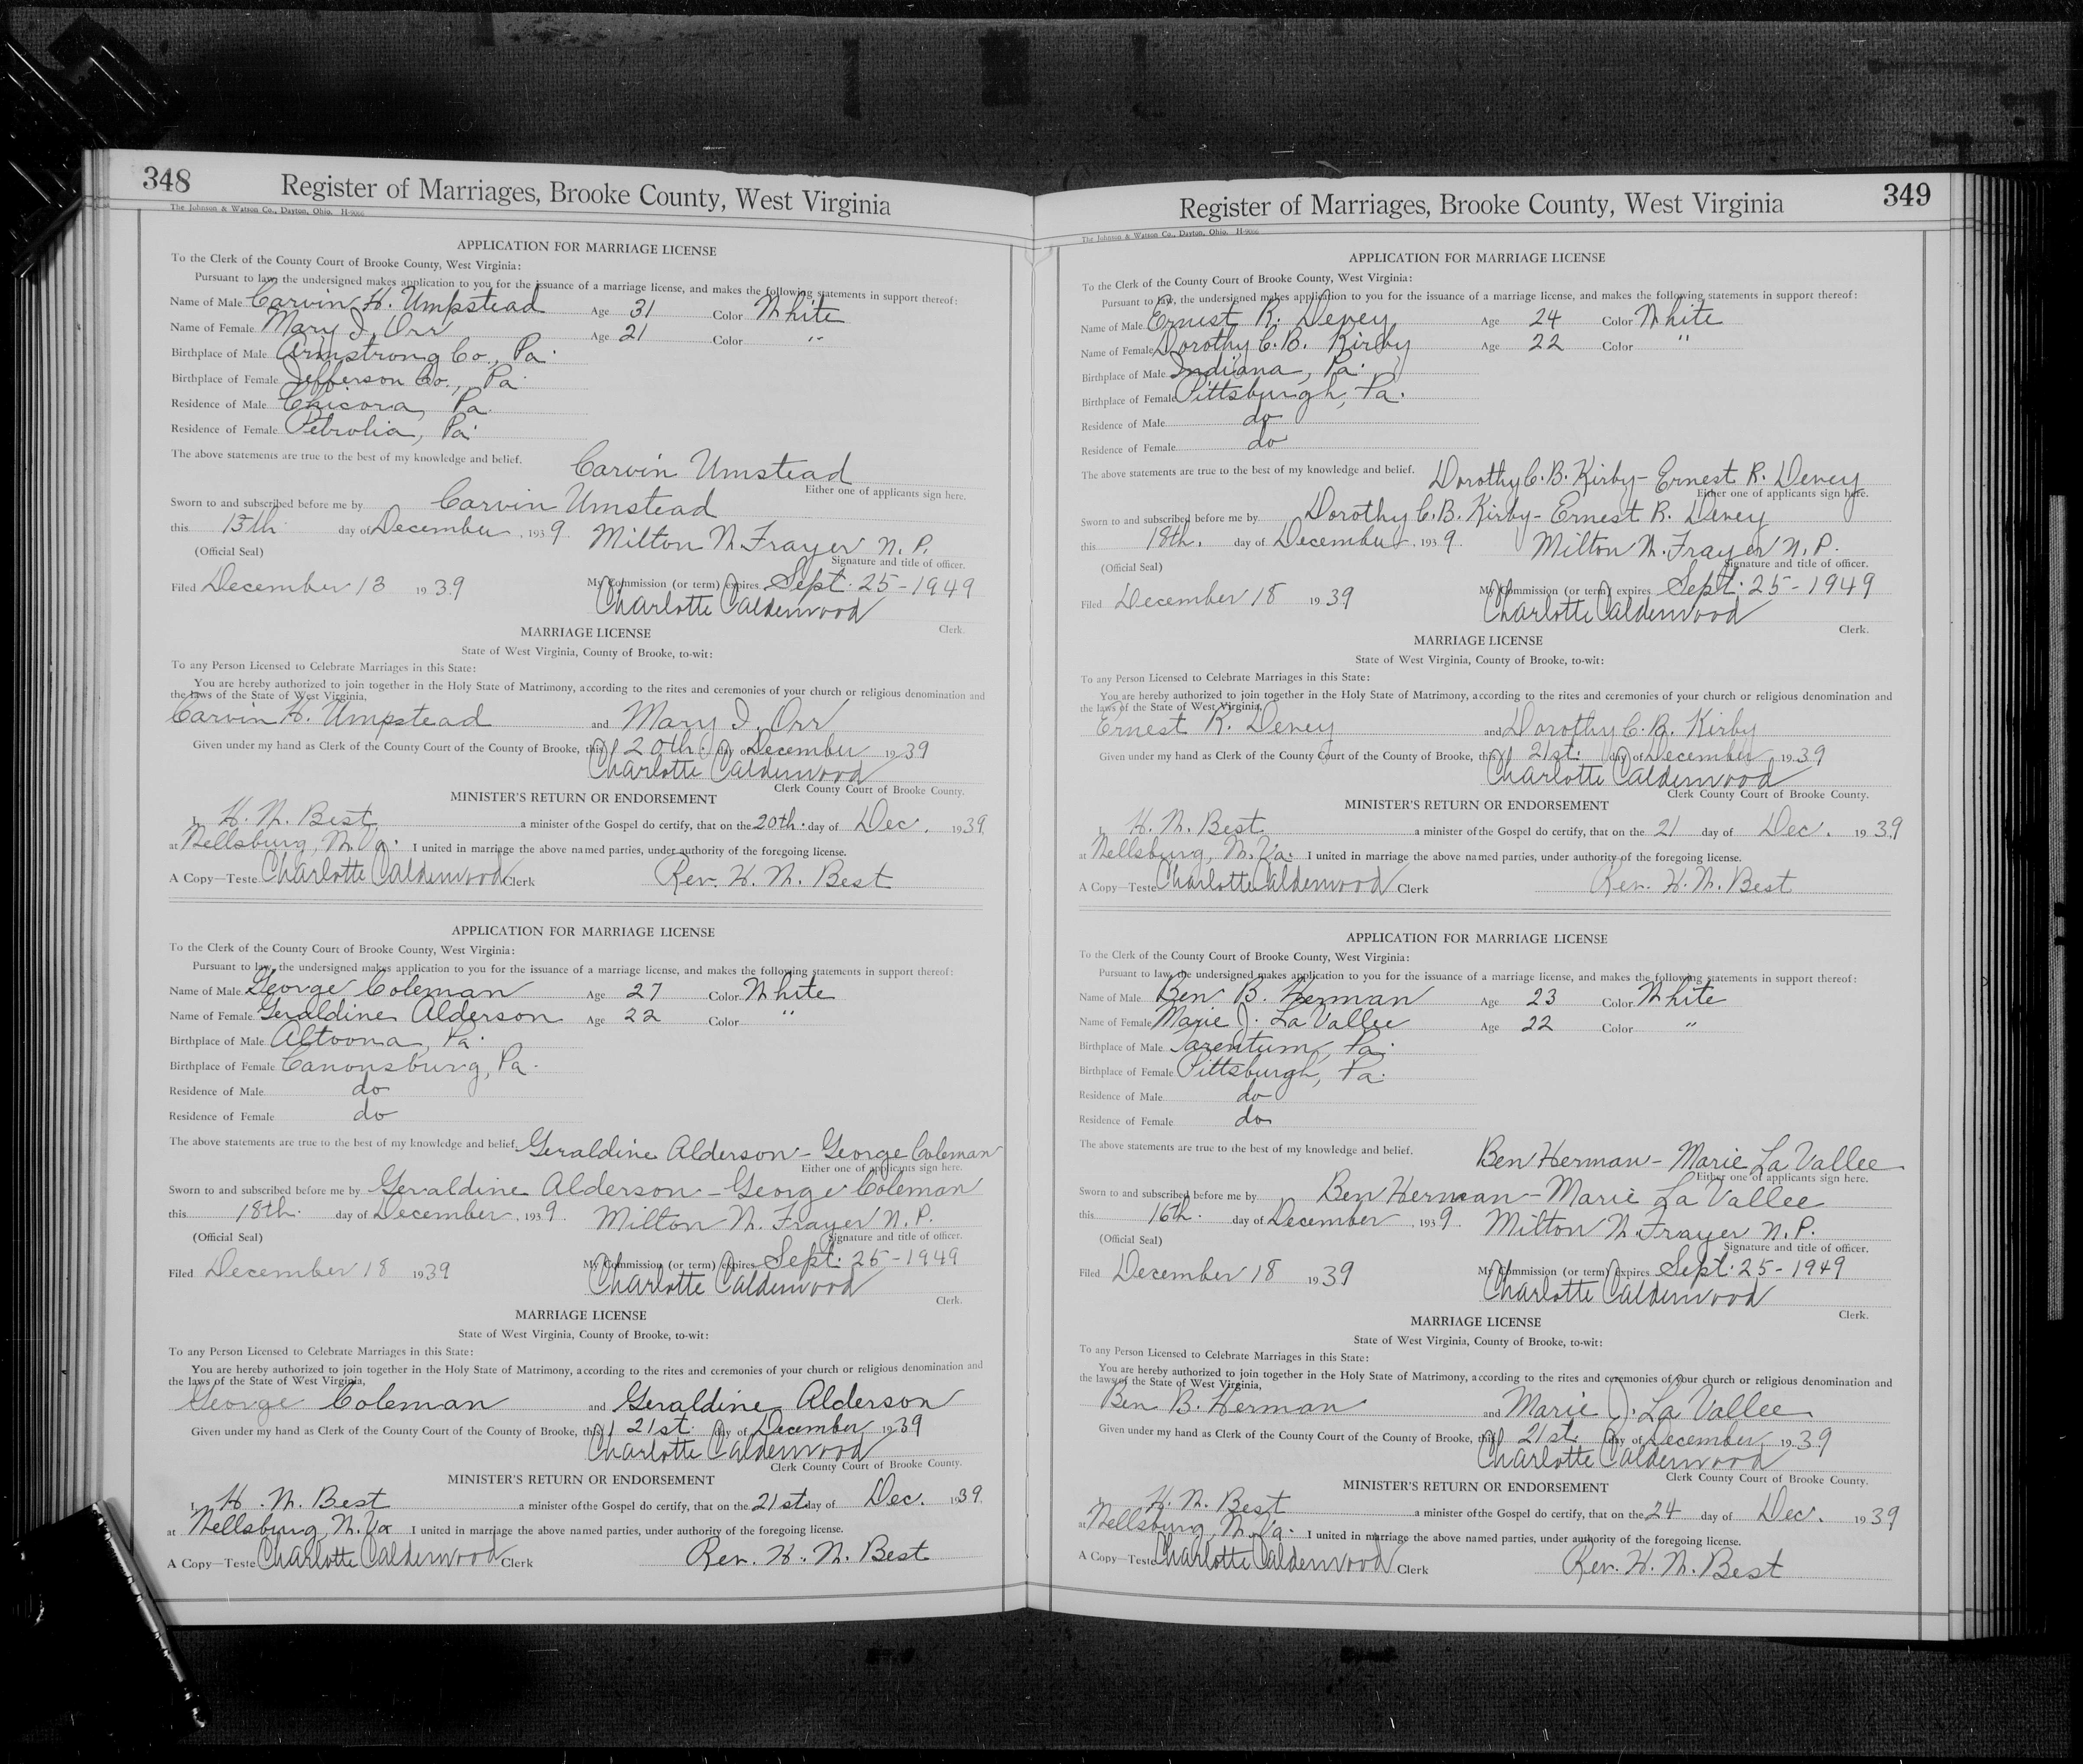 348
Register of Marriages, Brooke County, West Virginia
The Johnson & Watson Co., Dayton, Ohio. H-9066
APPLICATION FOR MARRIAGE LICENSE
To the Clerk of the County Court of Brooke County, West Virginia:
Pursuant to law, the undersigned makes application to you for the issuance of a marriage license, and makes the following statements in support thereof:
Name of Male Carvin H. Umpstead Age 31 Color White
Name of Female Mary I. Orr Age 21 Color "
Birthplace of Male Armstrong Co., Pa.
Birthplace of Female Jefferson Co., Pa.
Residence of Male Chicora, Pa.
Residence of Female Petrolia, Pa.
The above statements are true to the best of my knowledge and belief. Carvin Umstead
Either one of applicants sign here.
Sworn to and subscribed before me by Carvin Umstead
this 13th day of December, 1939. Milton W. Frayer N. P.
(Official Seal) Signature and title of officer.
Filed December 13 1939 My Commission (or term) expires Sept. 25-1949
Charlotte Calderwood
Clerk.
MARRIAGE LICENSE
State of West Virginia, County of Brooke, to-wit:
To any Person Licensed to Celebrate Marriages in this State:
You are hereby authorized to join together in the Holy State of Matrimony, according to the rites and ceremonies of your church or religious denomination and
the laws of the State of West Virginia,
Carvin H. Umpstead and Mary I. Orr
Given under my hand as Clerk of the County Court of the County of Brooke, this 20th. day of December 1939
Charlotte Calderwood
Clerk County Court of Brooke County.
MINISTER'S RETURN OR ENDORSEMENT
I, H. W. Best a minister of the Gospel do certify, that on the 20th. day of Dec. 1939
at Wellsburg, W. Va. I united in marriage the above named parties, under authority of the foregoing license.
A Copy—Teste Charlotte Calderwood Clerk Rev. H. W. Best
APPLICATION FOR MARRIAGE LICENSE
To the Clerk of the County Court of Brooke County, West Virginia:
Pursuant to law, the undersigned makes application to you for the issuance of a marriage license, and makes the following statements in support thereof:
Name of Male George Coleman Age 27 Color White
Name of Female Geraldine Alderson Age 22 Color "
Birthplace of Male Altoona, Pa.
Birthplace of Female Canonsburg, Pa.
Residence of Male do
Residence of Female do
The above statements are true to the best of my knowledge and belief. Geraldine Alderson - George Coleman
Either one of applicants sign here.
Sworn to and subscribed before me by Geraldine Alderson - George Coleman
this 18th. day of December, 1939. Milton W. Frayer N. P.
(Official Seal) Signature and title of officer.
Filed December 18 1939 My Commission (or term) expires Sept. 25-1949
Charlotte Calderwood
Clerk.
MARRIAGE LICENSE
State of West Virginia, County of Brooke, to-wit:
To any Person Licensed to Celebrate Marriages in this State:
You are hereby authorized to join together in the Holy State of Matrimony, according to the rites and ceremonies of your church or religious denomination and
the laws of the State of West Virginia,
George Coleman and Geraldine Alderson
Given under my hand as Clerk of the County Court of the County of Brooke, this 21st. day of December 1939
Charlotte Calderwood
Clerk County Court of Brooke County.
MINISTER'S RETURN OR ENDORSEMENT
I, H. W. Best a minister of the Gospel do certify, that on the 21st day of Dec. 1939.
at Wellsburg, W. Va I united in marriage the above named parties, under authority of the foregoing license.
A Copy—Teste Charlotte Calderwood Clerk Rev. H. W. Best
349
Register of Marriages, Brooke County, West Virginia
The Johnson & Watson Co., Dayton, Ohio. H-9066
APPLICATION FOR MARRIAGE LICENSE
To the Clerk of the County Court of Brooke County, West Virginia:
Pursuant to law, the undersigned makes application to you for the issuance of a marriage license, and makes the following statements in support thereof:
Name of Male Ernest R. Devey Age 24 Color White
Name of Female Dorothy C. B. Kirby Age 22 Color "
Birthplace of Male Indiana, Pa.
Birthplace of Female Pittsburgh, Pa.
Residence of Male do
Residence of Female do
The above statements are true to the best of my knowledge and belief. Dorothy C. B. Kirby - Ernest R. Devey
Either one of applicants sign here.
Sworn to and subscribed before me by Dorothy C. B. Kirby - Ernest R. Devey
this 18th. day of December, 1939. Milton W. Frayer N. P.
(Official Seal) Signature and title of officer.
Filed December 18 1939 My Commission (or term) expires Sept. 25-1949
Charlotte Calderwood
Clerk.
MARRIAGE LICENSE
State of West Virginia, County of Brooke, to-wit:
To any Person Licensed to Celebrate Marriages in this State:
You are hereby authorized to join together in the Holy State of Matrimony, according to the rites and ceremonies of your church or religious denomination and
the laws of the State of West Virginia,
Ernest R. Devey and Dorothy C. B. Kirby
Given under my hand as Clerk of the County Court of the County of Brooke, this 21st. day of December 1939
Charlotte Calderwood
Clerk County Court of Brooke County.
MINISTER'S RETURN OR ENDORSEMENT
I, H. W. Best a minister of the Gospel do certify, that on the 21 day of Dec. 1939
at Wellsburg, W. Va. I united in marriage the above named parties, under authority of the foregoing license.
A Copy—Teste Charlotte Calderwood Clerk Rev. H. W. Best
APPLICATION FOR MARRIAGE LICENSE
To the Clerk of the County Court of Brooke County, West Virginia:
Pursuant to law, the undersigned makes application to you for the issuance of a marriage license, and makes the following statements in support thereof:
Name of Male Ben B. Herman Age 23 Color White
Name of Female Marie J. La Vallee Age 22 Color "
Birthplace of Male Tarentum, Pa.
Birthplace of Female Pittsburgh, Pa.
Residence of Male do
Residence of Female do
The above statements are true to the best of my knowledge and belief. Ben Herman - Marie La Vallee
Either one of applicants sign here.
Sworn to and subscribed before me by Ben Herman - Marie La Vallee
this 16th. day of December, 1939. Milton W. Frayer N. P.
(Official Seal) Signature and title of officer.
Filed December 18 1939 My Commission (or term) expires Sept. 25-1949
Charlotte Calderwood
Clerk.
MARRIAGE LICENSE
State of West Virginia, County of Brooke, to-wit:
To any Person Licensed to Celebrate Marriages in this State:
You are hereby authorized to join together in the Holy State of Matrimony, according to the rites and ceremonies of your church or religious denomination and
the laws of the State of West Virginia,
Ben B. Herman and Marie J. La Vallee
Given under my hand as Clerk of the County Court of the County of Brooke, this 21st. day of December 1939
Charlotte Calderwood
Clerk County Court of Brooke County.
MINISTER'S RETURN OR ENDORSEMENT
I, H. W. Best a minister of the Gospel do certify, that on the 24 day of Dec. 1939
at Wellsburg, W. Va. I united in marriage the above named parties, under authority of the foregoing license.
A Copy—Teste Charlotte Calderwood Clerk Rev. H. W. Best